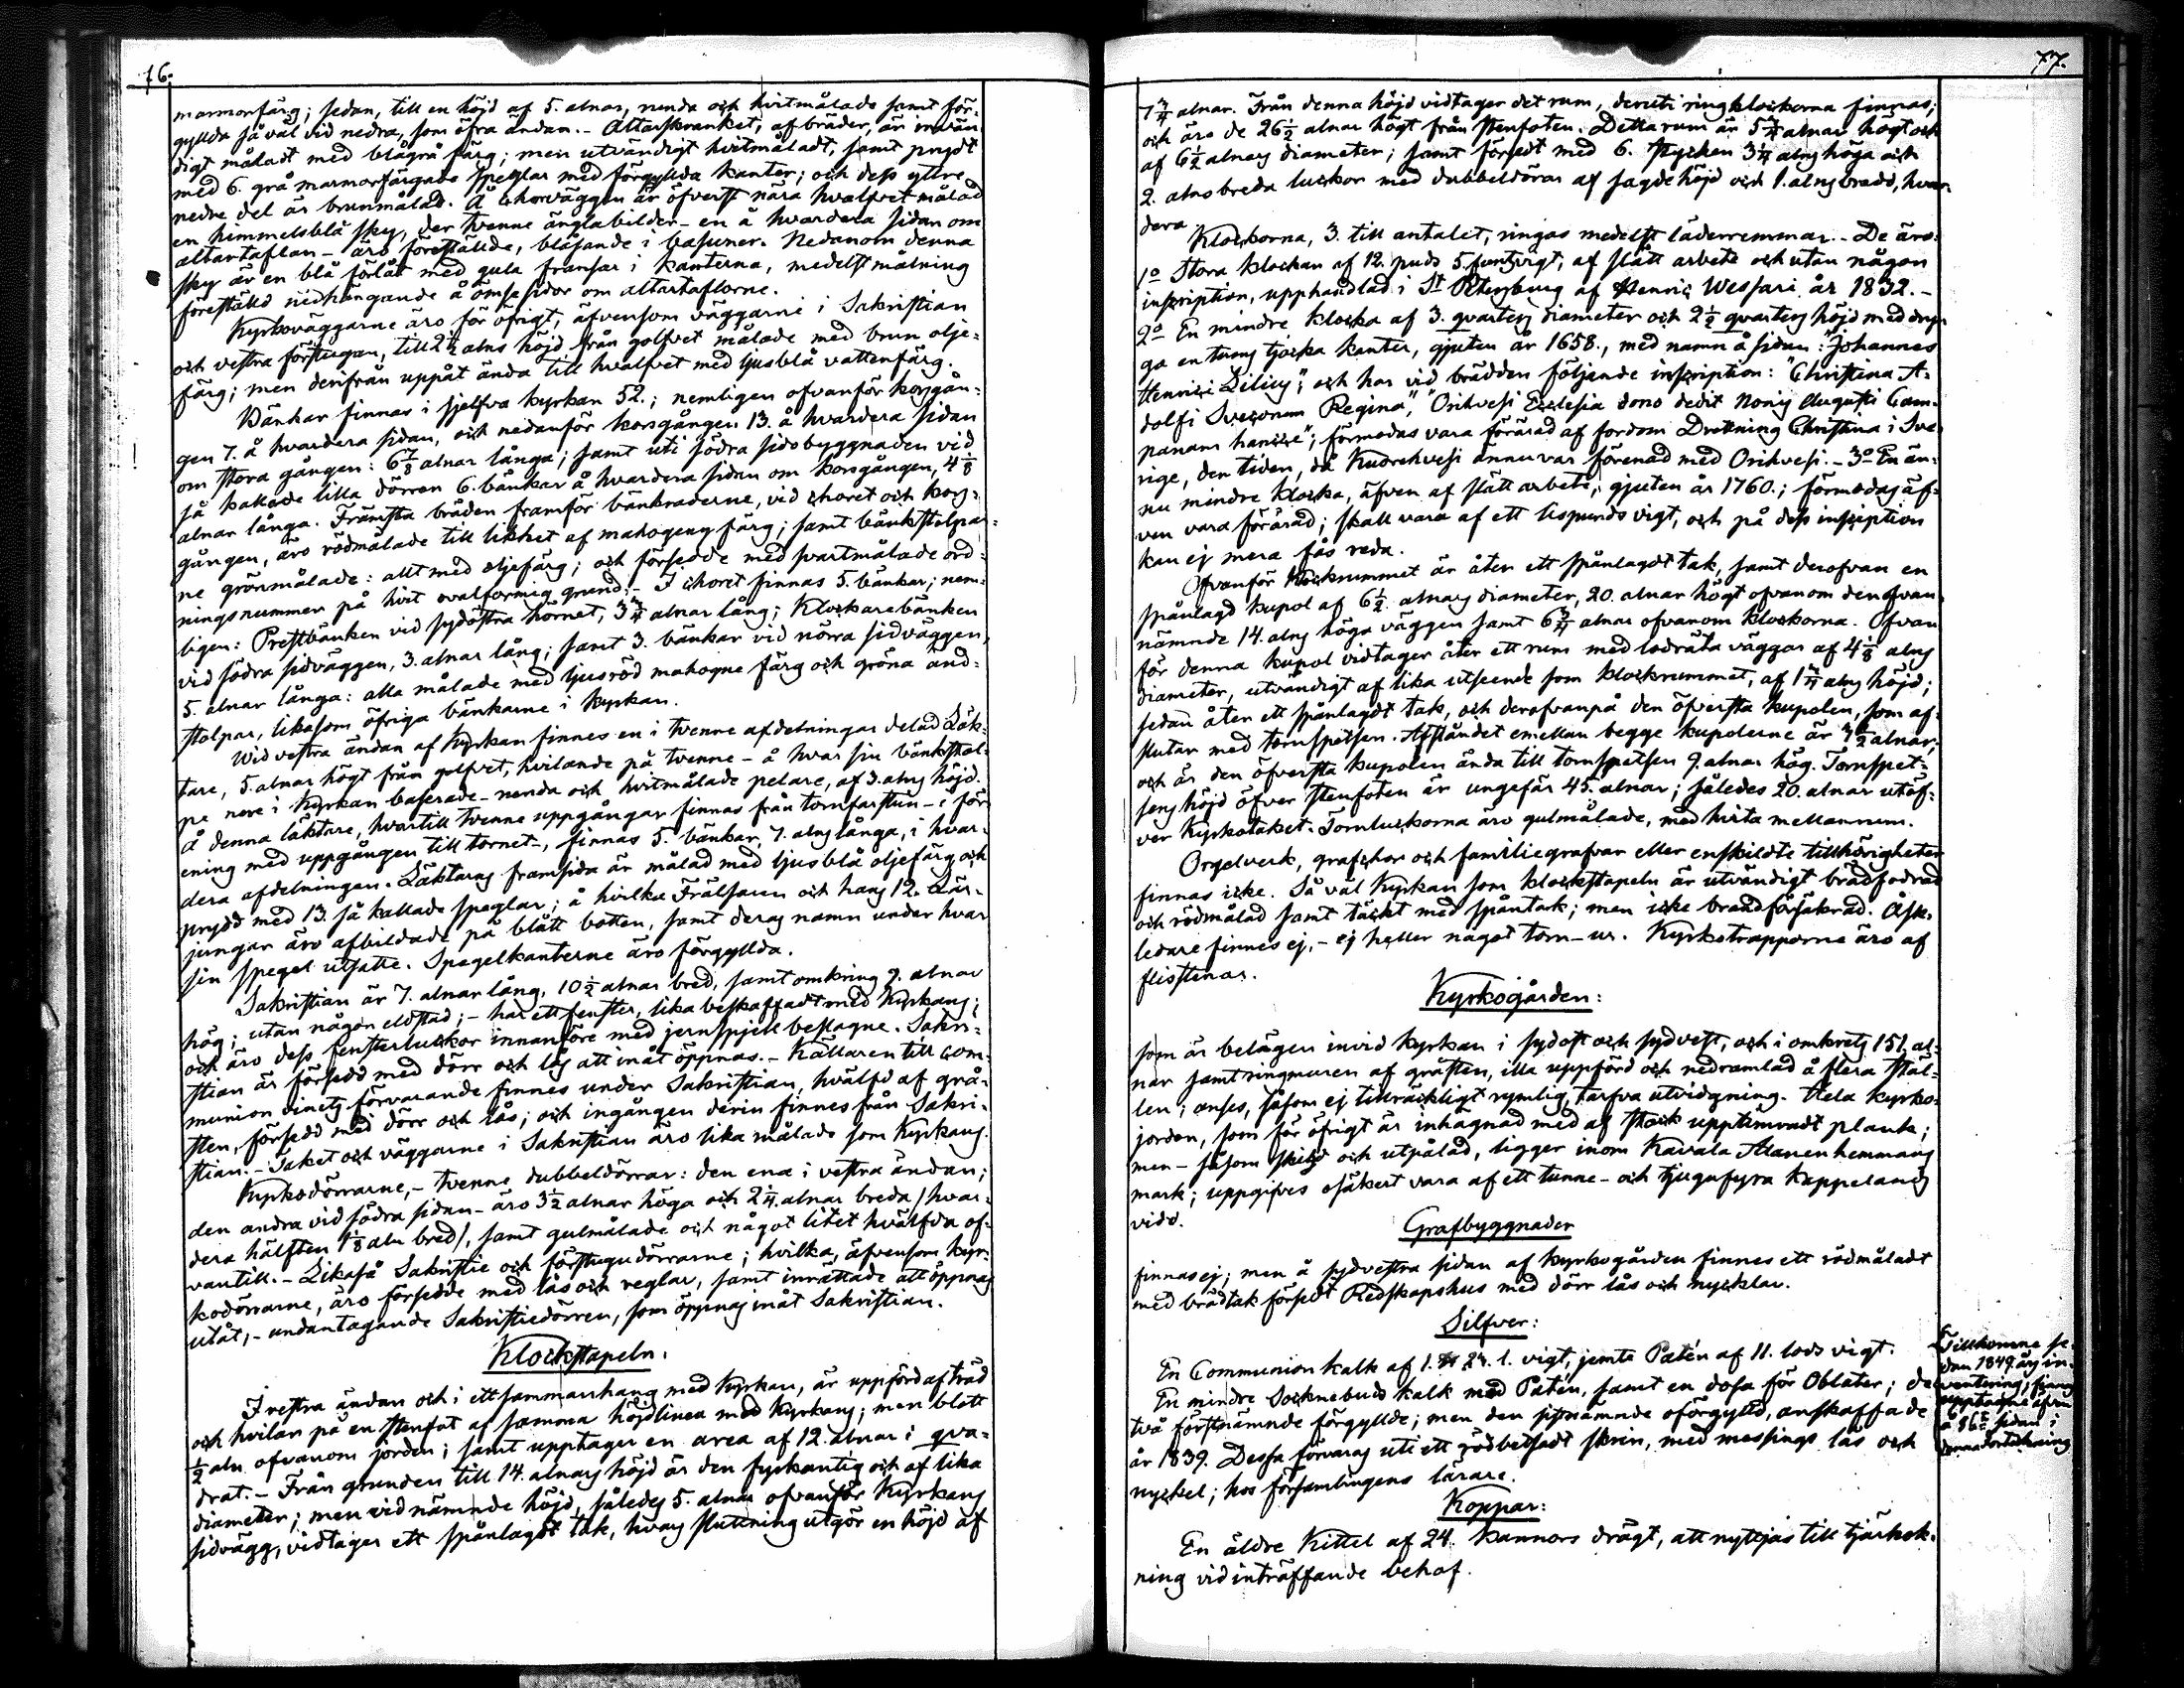 76.
marmorfärg; sedan, till en höjd af 5. alnar, runda och hvitmålade samt för-
gyllda så väl vid nedra, som öfra ändan. - Altarskranket, af bräder, är invän-
digt måladt med blågrå färg; men utvändigt hvitmåladt, samt prydt
med 6. grå marmorfärgade speglar med förgyllda kanter; och dess yttre
nedre del är brunmålad. Å Chorväggen är öfverst nära hvalfvet målad
en himmelsblå sky, der tvenne änglabilder - en å hvardera sidan om
altartaflan - äro föreställde, blåsande i basuner. Nedanom denna
sky är en blå förlåt med gula fransar i kanterna, medelst målning
föreställd nedhängande å ömse sidor om altartaflorne.
Kyrkoväggarne äro för öfrigt, äfvensom väggarne i Sakristian
och vestra förstugan, till 2½ alns höjd från golfvet målade med brun olje-
färg; men derifrån uppåt ända till hvalfvet med ljusblå vattenfärg.
Bänkar finnas i sjelfva kyrkan 52.; nemligen ofvanför korsgån-
gen 7. å hvardera sidan, och nedanför korsgången 13. å hvardera sidan
om stora gången: 6⅞ alnar långa; samt uti södra sidobyggnaden vid
så kallade lilla dörren 6. bänkar å hvardera sidan om korsgången, 4⅛
alnar långa. Främsta bräden framför bänkraderne, vid choret och kors-
gången, äro rödmålade till likhet af mahogeny färg; samt bänkstolpar-
ne grönmålade: allt med oljefärg; och försedde med svartmålade ord-
ningsnummer på hvit ovalformig grund. - I choret finnas 5. bänkar; nem-
ligen: Prestbänken vid sydöstra hörnet, 3¾ alnar lång; Klockarebänken
vid södra sidväggen, 3. alnar lång; samt 3. bänkar vid norra sidväggen,
5. alnar långa: alla målade med ljusröd mahogne färg och gröna änd-
stolpar, likasom öfriga bänkarne i kyrkan.
Wid vestra ändan af Kyrkan finnes en i tvenne afdelningar delad Läk-
tare, 5. alnar högt från golfvet, hvilande på tvenne - å hvar sin bänkstol-
pe nere i Kyrkan baserade - runda och hvitmålade pelare, af 3. alns höjd.
Å denna läktare, hvartill tvenne uppgångar finnas från tornfarstun - i för-
ening med uppgången till tornet -, finnas 5. bänkar, 7. alns långa, i hvar-
dera afdelningen. Läktarns framsida är målad med ljusblå oljefärg och
prydd med 13. så kallade speglar; å hvilka Frälsaren och hans 12. Lär-
jungar äro afbildade på blått botten, samt deras namn under hvar
sin spegel utsatte. Spegelkanterne äro förgyllda.
Sakristian är 7. alnar lång, 10½ alnar bred, samt omkring 9. alnar
hög; utan någon eldstad; - har ett fenster, lika beskaffadt med Kyrkans;
och äro dess fensterluckor innanföre med jernspjell beslagne. Sakri-
stian är försedd med dörr och lås att inåt öppnas. - Källaren till com-
munion vinets förvarande finnes under Sakristian, hvälfd af grå-
sten, försedd med dörr och lås; och ingången derin finnes från Sakri-
stian. - Taket och väggarne i Sakristian äro lika målade som Kyrkans.
Kyrkodörrarne, - tvenne dubbeldörrar: den ena i vestra ändan;
den andra vid södra sidan - äro 3½ alnar höga och 2¼ alnar breda / hvar-
dera hälften 1⅛ aln bred /, samt gulmålade och något litet hvälfda of-
vantill. - Likaså Sakristie och förstugudörrarne; hvilka, äfvensom kyr-
kodörrarne, äro försedde med lås och reglar, samt inrättade att öppnas
utåt, - undantagande Sakristiedörren, som öppnas inåt Sakristian.
Klockstapeln.
I vestra ändan och i ett sammanhang med Kyrkan, är uppförd af träd
och hvilar på en stenfot af samma höjdlinea med Kyrkans; men blott
½ aln ofvanom jorden; samt upptager en area af 12. alnar i qva-
drat. - Från grunden till 14. alnars höjd är den fyrkantig och af lika
diameter; men vid nämnde höjd, således 5. alnar ofvanför Kyrkans
sidvägg, vidtager ett spånlagdt tak, hvars sluttning utgör en höjd af
77.
7¾ alnar. Från denna höjd vidtager det rum, deruti ringklockorna finnas;
och äro de 26½ alnar högt från stenfoten. Detta rum är 5¾ alnar högt och
af 6½ alnars diameter; samt försedt med 6. stycken 3¼ alns höga och
2. alns breda luckor med dubbeldörrar af sagde höjd och 1. alns bredd, hvar-
dera
Klockorna, 3. till antalet, ringas medelst läderremmar. - De äro:
1o Stora klockan af 12. puds 5. funts vigt, af slätt arbete och utan någon
inscription, upphandlad i St Petersburg af Henric Wessari år 1832. -
2o En mindre klocka af 3. qvarters diameter och 2½ qvarters höjd med dryga
en tums tjocka kanter, gjuten år 1658., med namn å sidan: "Johannes
Henrici Lilius"; och har vid brädden följande inscription: "Christina A-
dolfi Svecorum Regina", "Orihvesi Ecclesia dono dedit Nonis Augusti Cam-
panam hancce"; förmodas vara förärad af fordom Drottning Christina i Sve-
rige, den tiden, då Kuorehvesi ännu var förenad med Orihvesi. - 3o En än-
nu mindre klocka, äfven af slätt arbete, gjuten år 1760.; förmodas äf-
ven vara förärad; skall vara af ett lispunds vigt, och på dess inscription
kan ej mera fås reda.
Ofvanför klockrummet är åter ett spånlagdt tak, samt derofvan en
spånlagd kupol af 6½ alnars diameter, 20. alnar högt ofvanom den ofvan-
nämnde 14. alns höga väggen samt 6¾ alnar ofvanom klockorna. Ofvan
för denna kupol vidtager åter ett rum med lodräta väggar af 4⅛ alns
diameter, utvändigt af lika utseende som klockrummet, af 1¾ alns höjd;
sedan åter ett spånlagdt tak, och derofvanpå den öfversta kupolen, som af-
slutar med tornspetsen. Afståndet emellan begge kupolerne är 4½ alnar;
och är den öfversta kupolen ända till tornspetsen 9. alnar hög. Tornspet-
sens höjd öfver stenfoten är ungefär 45. alnar; således 20. alnar utöf-
ver Kyrkotaket. Tornluckorna äro gulmålade, med hvita mellanrum.
Orgelverk, grafchor och familiegrafvar eller enskildte tillhörigheter
finnas icke. Så väl Kyrkan som klockstapeln är utvändigt brädfodrad
och rödmålad samt täckt med spåntak; men icke brandförsäkrad. Åsk-
ledare finnes ej, - ej heller något torn-ur. Kyrkotrapporne äro af
flisstenar.
Kyrkogården:
som är belägen invid kyrkan i sydost och sydvest, och i omkrets 151. al-
nar samt ringmuren af gråsten, illa uppförd och nedramlad å flera stäl-
len; anses, såsom ej tillräckligt rymlig, tarfva utvidgning. Hela kyrko-
jorden, som för öfrigt är inhägnad med af stock upptimradt plank;
men - såsom skild och utpålad, ligger inom Kavala Alanen hemmans
mark; uppgifves osäkert vara af ett tunne - och tjugufyra kappelands
vidd.
Grafbyggnader
finnas ej; men å sydvestra sidan af kyrkogården finnes ett rödmåladt
med brädtak försedt Redskapshus med dörr lås och nycklar.
Silfver:
En Communion kalk af 1. ℔ 24. l. vigt, jemte Patén af 11. lods vigt.
En mindre Socknebuds kalk med Patén, samt en dosa för Oblater; de
två förstnämnde förgyllde; men den sistnämnde oförgylld, anskaffade
år 1839. Dessa förvaras uti ett rödbetsadt skrin, med messings lås och
nyckel; hos församlingens lärare.
Tillkomne se-
dan 1849. års in-
ventering, finnas
upptagne
å 86e sidan i
denna förteckning
Koppar:
En äldre Kittel af 24. kannors drägt, att nyttjas till tjärkok-
ning vid inträffande behof.